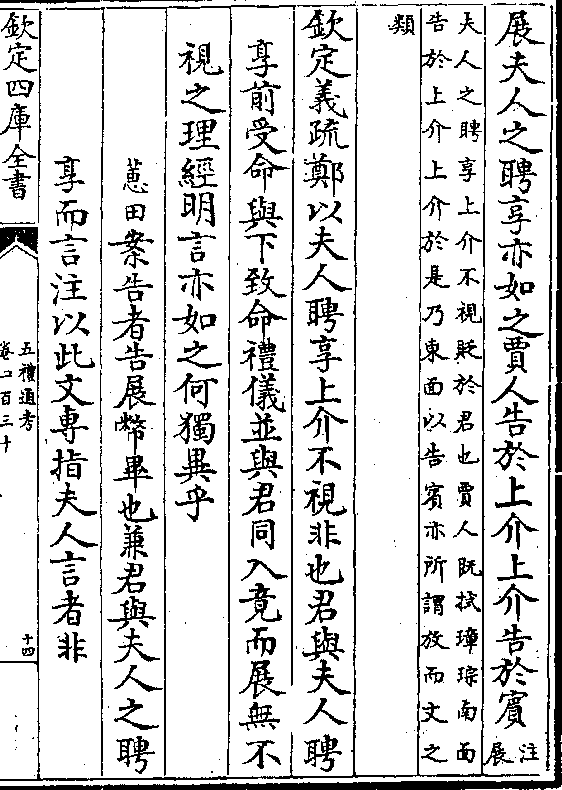 展夫人之聘享亦如之賈人告於上介上介告於賓
注展
夫人之聘享上介不視貶於君也賈人既拭璋琮南面
告於上介上介於是乃東面以告賓亦所謂放而文之
類
欽定義疏鄭以夫人聘享上介不視非也君與夫人聘
享前受命與下致命禮儀並與君同入竟而展無不
視之理經明言亦如之何獨異乎
蕙田案告者告展幣畢也兼君與夫人之聘
享而言注以此文專指夫人言者非
欽定四庫全書
五禮通考
卷二百三十
十四